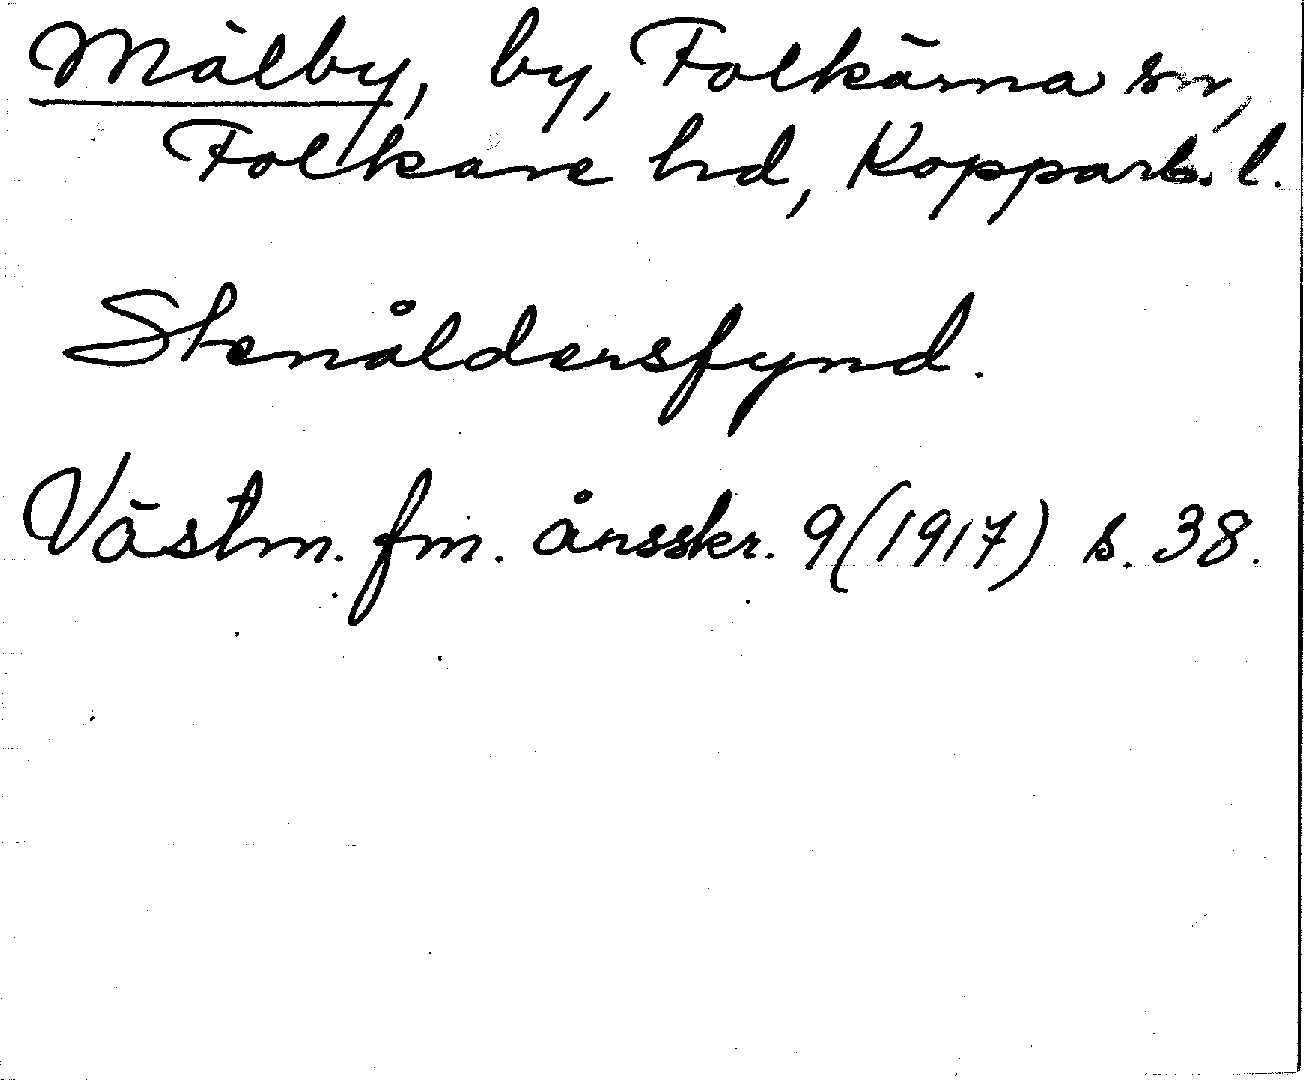 Mälby, by, Folkärna sn,
Folkare hd, Kopparb. l.
Stenåldersfynd.
Västm. fm. årsskr. 9 (1917) s. 38.